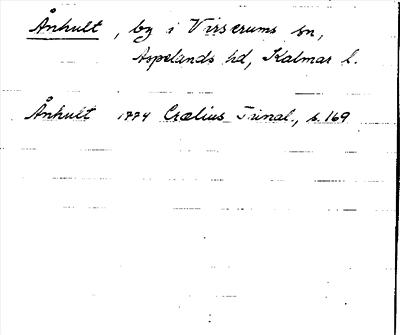 Ånhult, by i Virserums sn,
Aspelands hd, Kalmar l.
Ånhult 1774 Crælius Trinal., s. 169